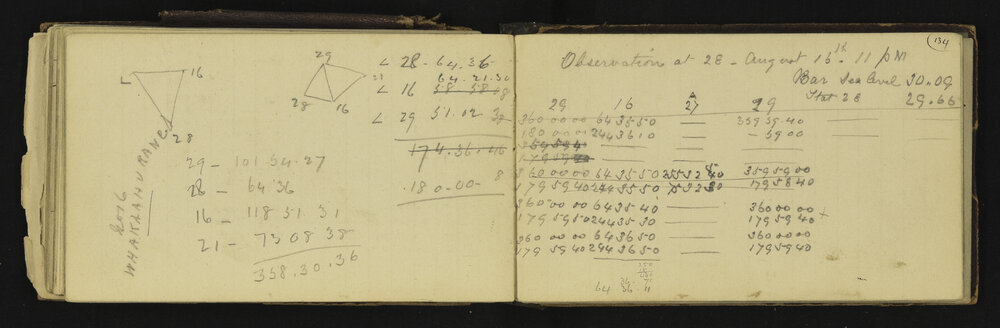 16
28
29
28
16
< 28 - 64.36
64.21.30
< 16 58 58
< 29 51.02
174.36.46
180-00-8
29 - 101 54.27
28 - 64.36
16 - 118 31.31
21 - 73 08 38
358.30.36
note
WHAKAAHURANGI
134
Observation at 28 - August 16th. 11 pm
Bar Sea level 30.09
Stat 28 29.66
29 16 27 29
360 00 00 64 35 50 — 359 59.40
180 00 00 244 36 10 — - 59 00
359 59 4
179 59
360 00 00 64 35 50 255 52 40 359 59 00
179 59 40 244 35 50 75 52 30 179 58 40
360 00 00 64 35 40 — 360 00 00
179 59 50 244 35 30 — 179 59 40 +
360 00 00 64 36 50 — 360 00 00
179 59 40 244 36 50 — 179 59 40
64 36 11